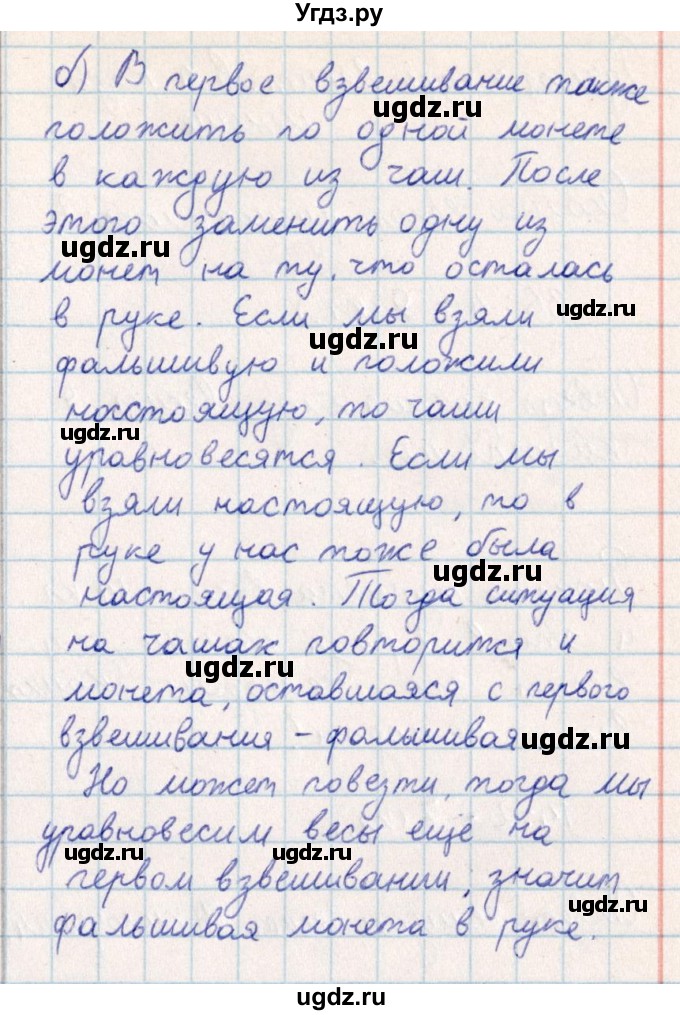 Угдз.ру
б) В первое взвешивание также
ugdz.ru
положить по одной монете
в каждую из чаш. После
этого заменить одну из
ugdz.ru ugdz.ru
монет на ту, что осталась
в руке. Если мы взяли
ugdz.ru
ugdz.ru
фальшивую и положили
настоящую, то чаши
ugdz.ru
уравновесятся. Если мы
взяли настоящую, то в
ugdz.ru
руке у нас тоже была
ugdz.ru
настоящая. Тогда ситуация
на чашах повторится и
ugdz.ru
монета, оставшаяся с первого
взвешивания - фальшивая
ugdz.ru
Но может повезти, тогда мы
уравновесим весы ещё на
ugdz.ru ugdz.ru
первом взвешивании, значит
ugdz.ru
фальшивая монета в руке.
ugdz.ru